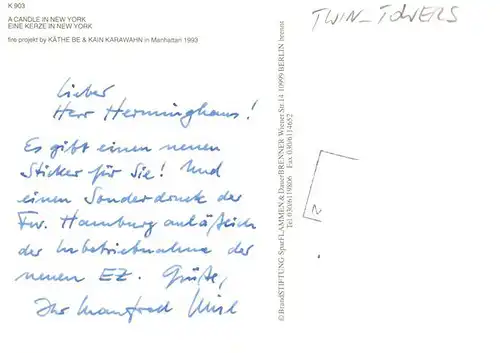 K 903
A CANDLE IN NEW YORK
EINE KERZE IN NEW YORK
fire projekt by KÄTHE BE & KAIN KARAWAHN in Manhattan 1993
Lieber
Herr Herminghaus!
Es gibt einen neuen
Sticker für Sie! Und
einen Sonderdruck der
Fw. Hamburg anläßlich
der Inbetriebnahme der
neuen EZ. Grüße,
Ihr Manfred
©BrandSTIFTUNG SpurFLAMMEN & DauerBRENNER Wiener Str. 14 10999 BERLIN brennt
TWIN-TOWERS